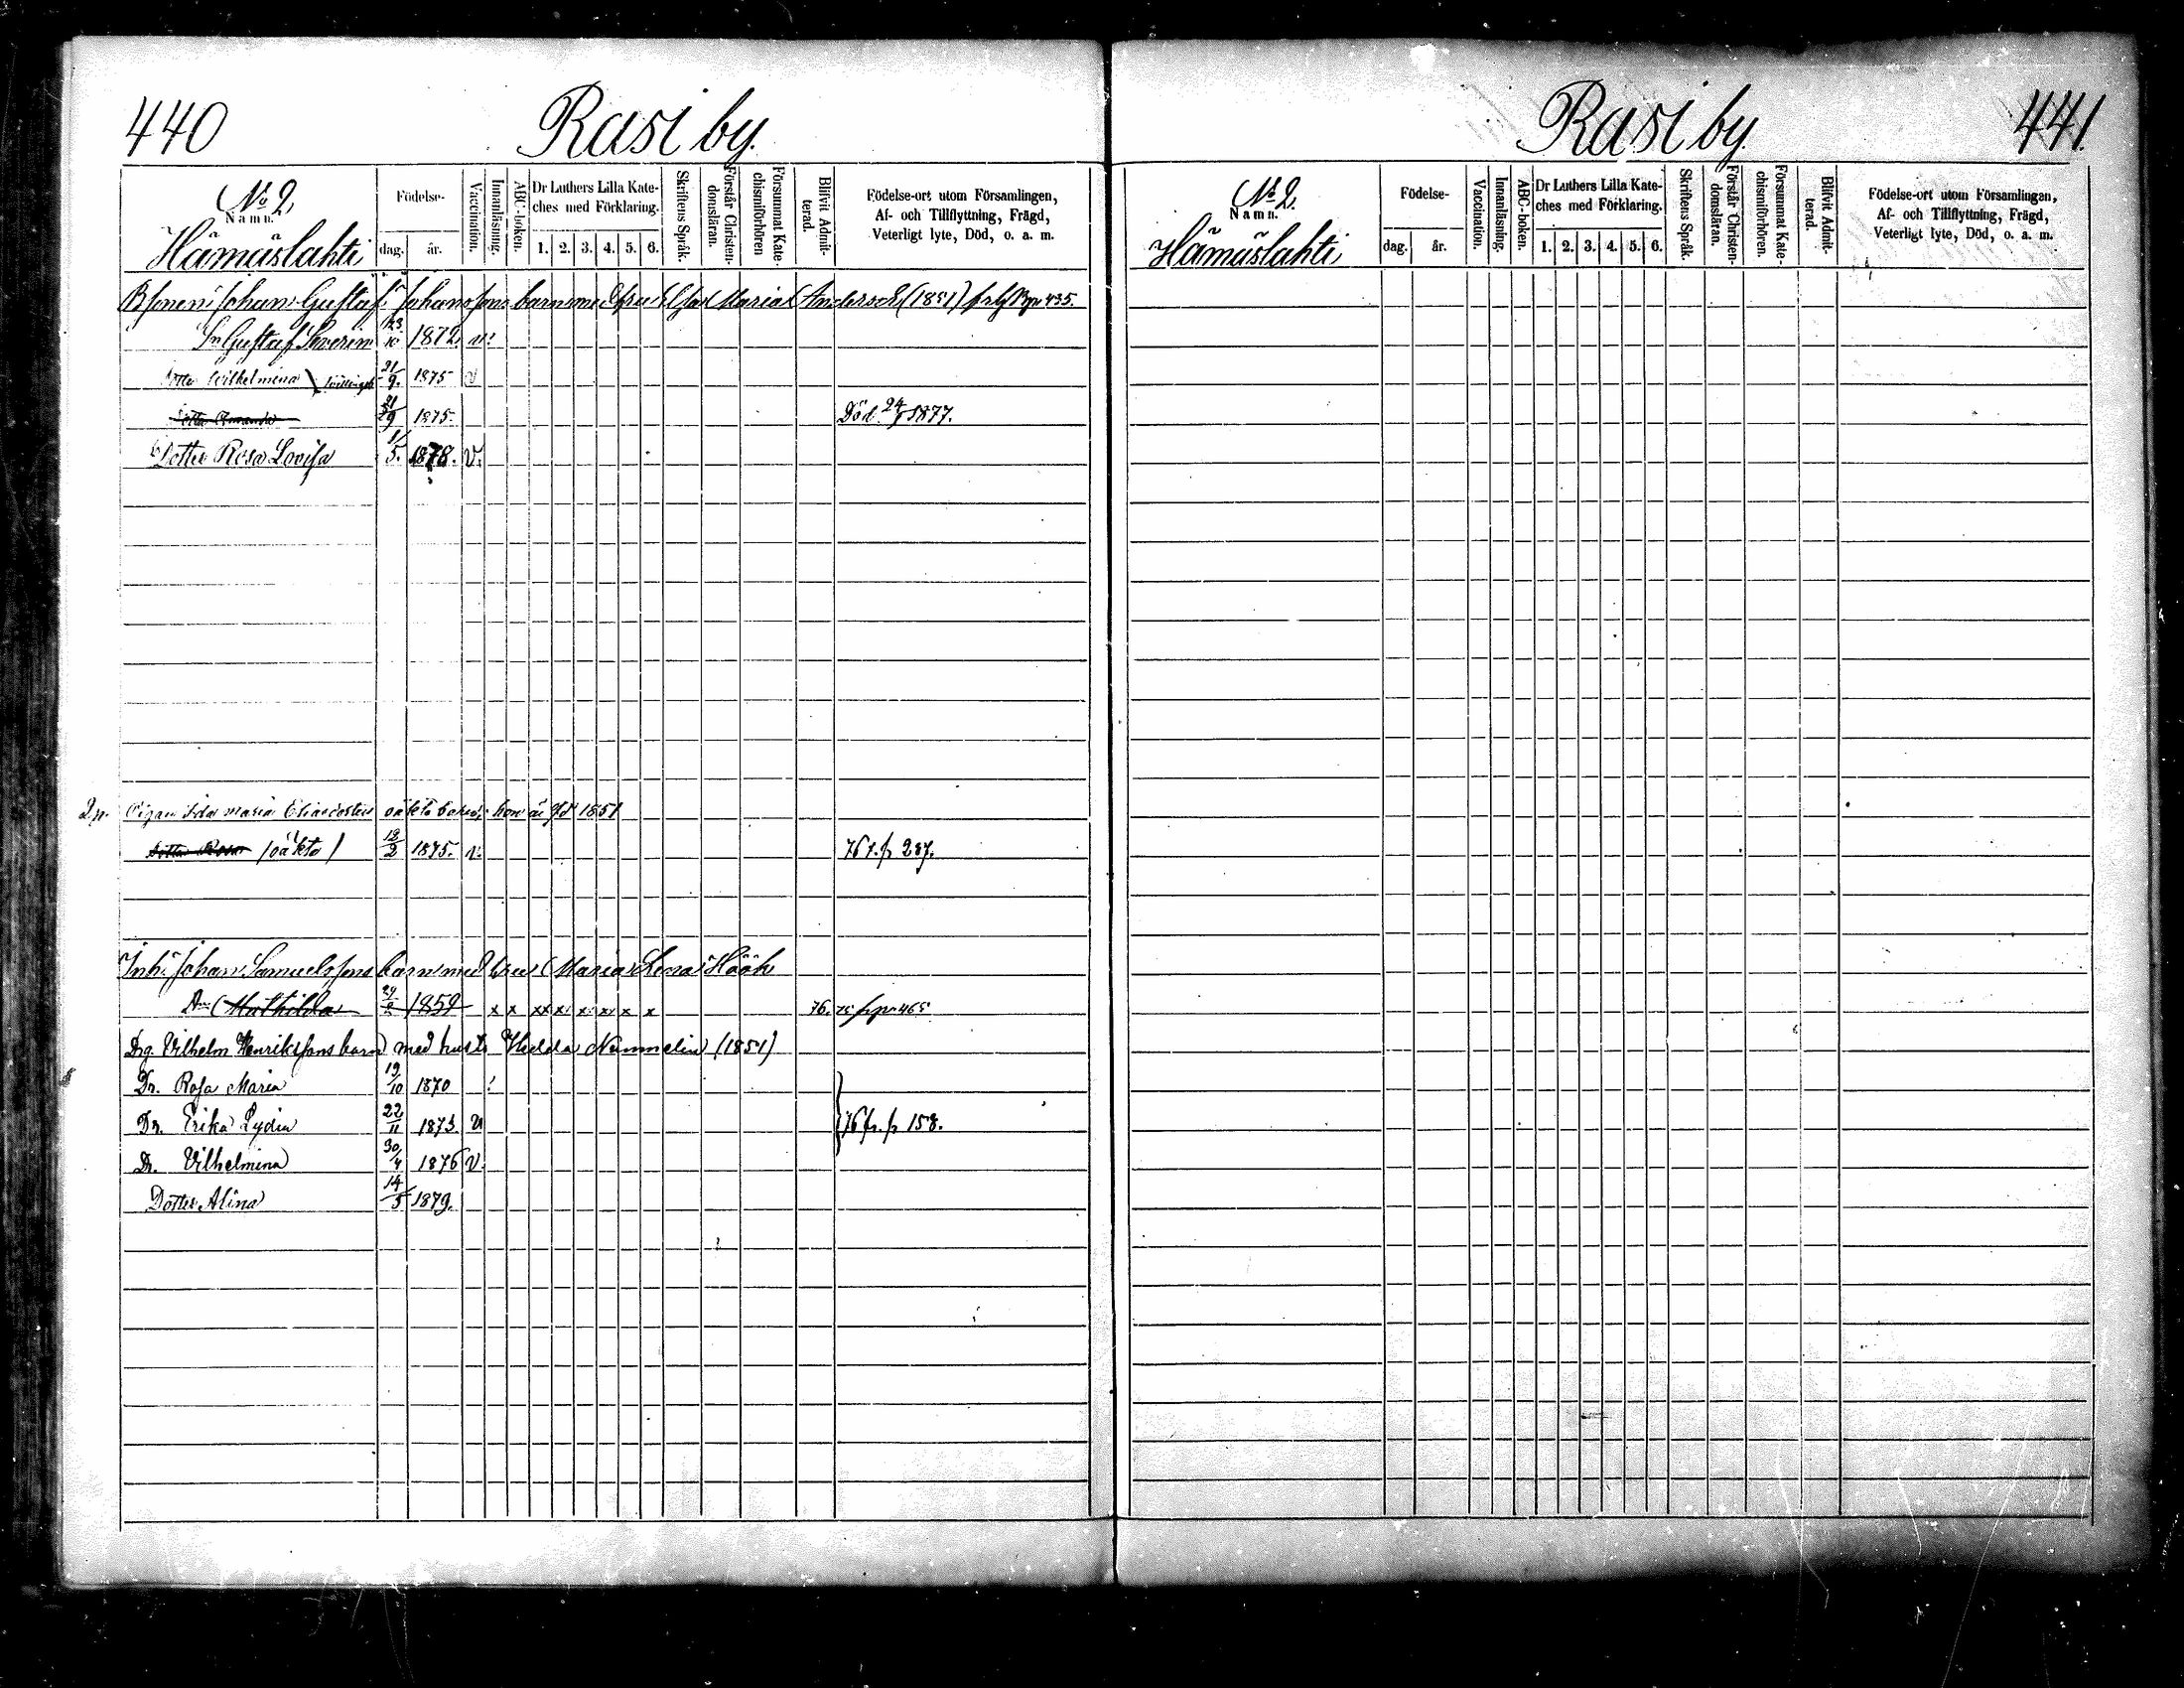 440 Rasi by.
No 2.
Namn.
Hämäslahti
Födelse-
dag. år.
Vaccination.
Innanläsning.
ABC-boken.
Dr Luthers Lilla Kate-
ches med Förklaring.
1. 2. 3. 4. 5. 6.
Skriftens Språk.
Förstår Christen-
domsläran.
Försummat Kate-
chismiförhören
Blifvit Admit-
terad.
Födelse-ort utom Församlingen,
Af- och Tillflyttning, Frägd,
Veterligt lyte, Död, o. a. m.
Johan Gustaf Johanssons barn med hru Maria Andersdr (1851)
Sn Gustaf Severin 23/10 1872. v.
Dotter Wilhelmina 21/9. 1875 v
Dotter Amanda 21/9 1875. Död 1877.
Dotter Rosa Lovisa 1/5. 1878. v.
Pigan Ida Maria oäkta barn; hon är född 1851
Dotter Rosa /oäkta/ 12/2 1875. v. 287.
Inh. Johan Samuelssons barn med hru Maria Lena Höök
Dr Mathilda 1859 x x x x x x x x x 76.
Drg. Vilhelm Henrikssons barn med hustr Hedda Nummelin (1851)
Dr. Rosa Maria 19/10 1870
Dr. Erika Lydia 22/11 1873 v 76 fr. p 158.
Dr. Vilhelmina 30/4 1876 v.
Dotter Alina 14/5 1879.
Rasi by. 441.
No 2.
Namn.
Hämäslahti
Födelse-
dag. år.
Vaccination.
Innanläsning.
ABC-boken.
Dr Luthers Lilla Kate-
ches med Förklaring.
1. 2. 3. 4. 5. 6.
Skriftens Språk.
Förstår Christen-
domsläran.
Försummat Kate-
chismiförhören.
Blifvit Admit-
terad.
Födelse-ort utom Församlingen,
Af- och Tillflyttning, Frägd,
Veterligt lyte, Död, o. a. m.